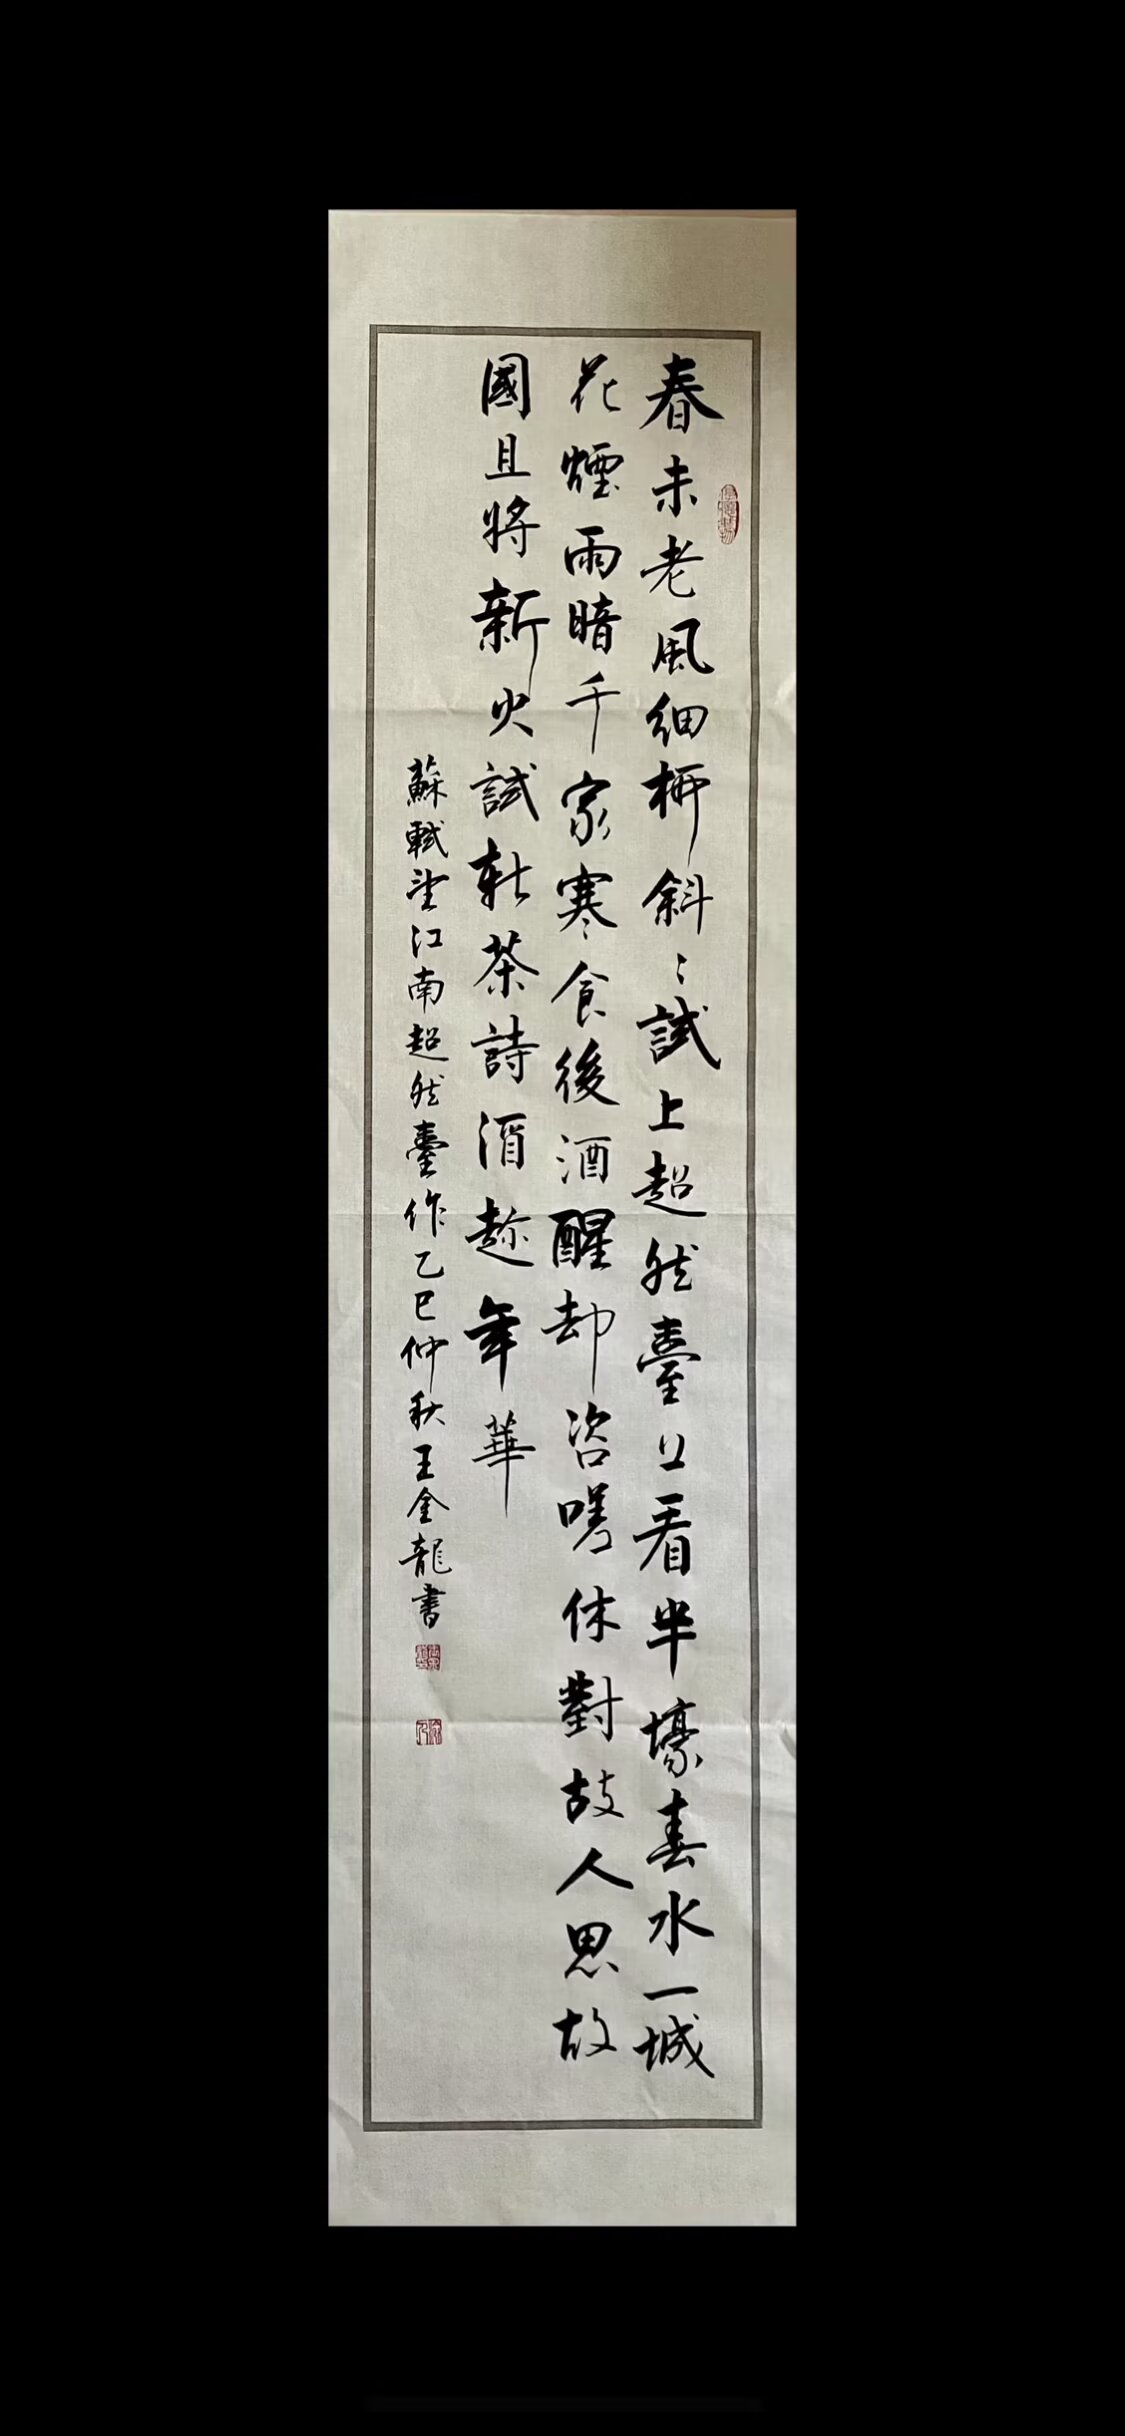 春未老風細柳斜〻試上超然臺上看半壕春水一城
花煙雨暗千家寒食後酒醒却咨嗟休對故人思故
國且將新火試新茶詩酒趁年華
蘇軾望江南超然臺作乙巳仲秋王金龍書